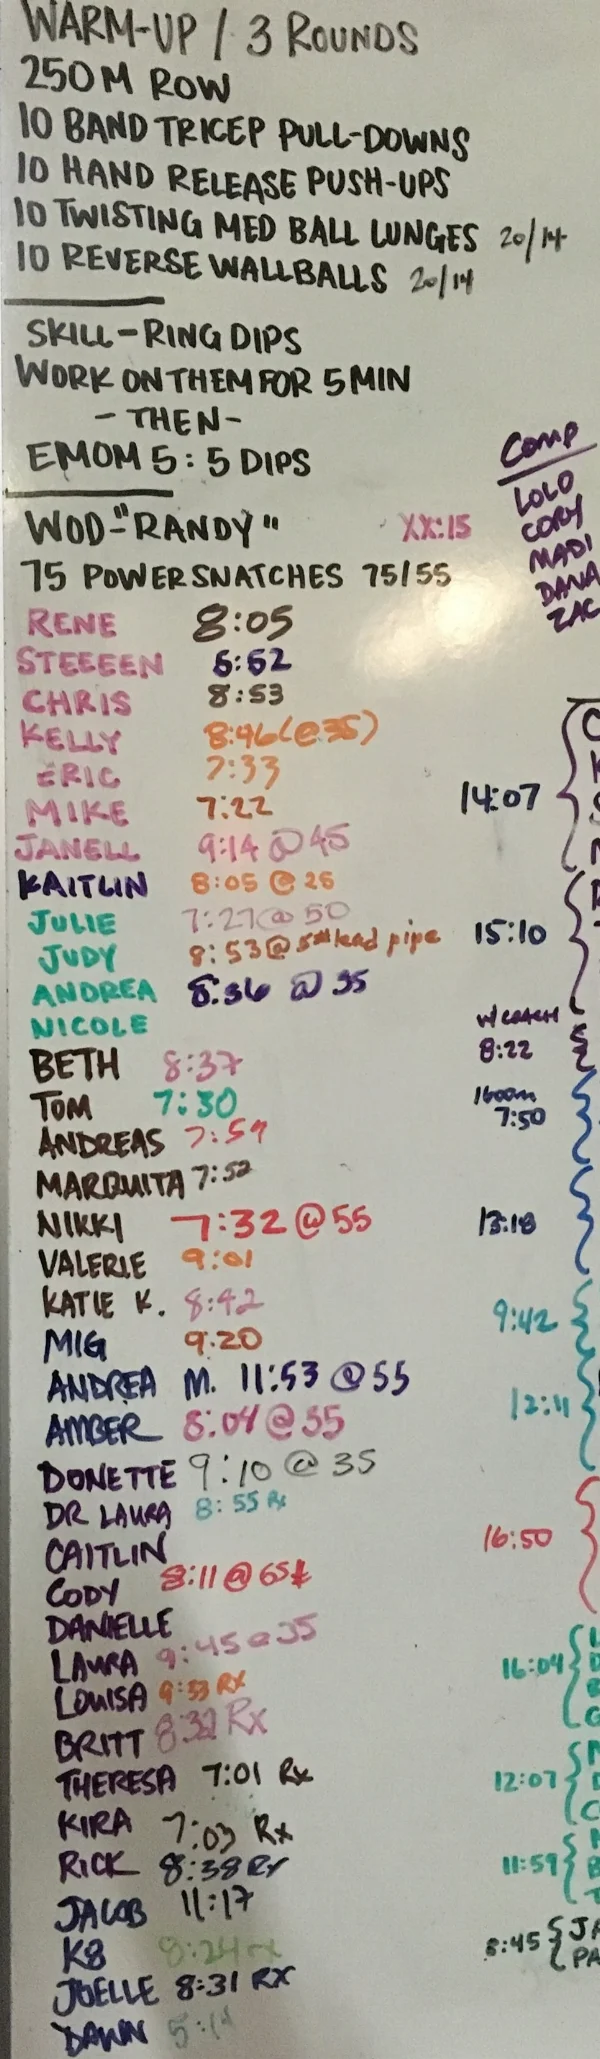 WARM-UP / 3 ROUNDS
250M ROW
10 BAND TRICEP PULL-DOWNS
10 HAND RELEASE PUSH-UPS
10 TWISTING MED BALL LUNGES 20/14
10 REVERSE WALLBALLS 20/14
SKILL-RING DIPS
WORK ON THEM FOR 5 MIN
-THEN-
EMOM 5: 5 DIPS
WOD-"RANDY" XX:15
75 POWER SNATCHES 75/55
RENE 8:05
STEEEEN
CHRIS 8:53
KELLY 8:46 (@35)
ERIC 7:33
MIKE 7:22
JANELL 9:14 @ 45
KAITLIN 8:05 @ 25
JULIE 7:27 @ 50
JUDY 8:53 @ 5# lead pipe
ANDREA 8:36 @ 35
NICOLE
BETH 8:37
TOM 7:30
ANDREAS 7:59
MARQUITA 7:52
NIKKI 7:32 @ 55
VALERIE 9:01
KATIE K. 8:42
MIG 9:20
ANDREA M. 11:53 @ 55
AMBER 8:04 @ 35
DONETTE 9:10 @ 35
DR LAURA 8:55 Rx
CAITLIN
CODY 8:11 @ 65#
DANIELLE
LAURA 9:45 @ 35
LOUISA 9:33 RX
BRITT 8:32 Rx
THERESA 7:01 Rx
KIRA 7:03 Rx
RICK 8:38 Rx
JACOB 11:17
K8 8:24 rx
JOELLE 8:31 RX
DAWN
COMP
LOLO
CORY
MADI
DANA
ZAC
14:07
15:10
W/ COACH
8:22
1600m
7:50
13:18
9:42
12:11
16:50
16:04
12:07
11:59
8:45